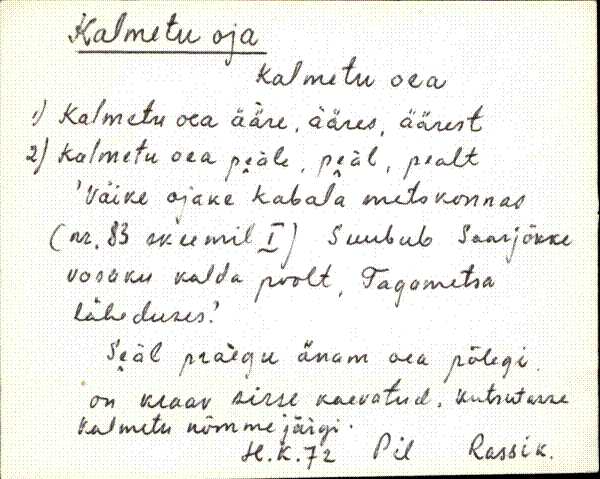 Kalmetu oja
Kalmetu oea
1) Kalmetu oea ääre, ääres, äärest
2) Kalmetu oea peäle, peäl, pealt
'Väike ojake Kabala metskonnas
(nr. 83 skeemil I) Suubub Saarjõkke
vosaku kalda poolt, Tagametsa
läheduses.'
Seäl praegu änam oea põlegi,
on kraav sisse kaevatud. Kutsutasse
Kalmetu nõmme järgi.
H.K.72 Pil Rassik.